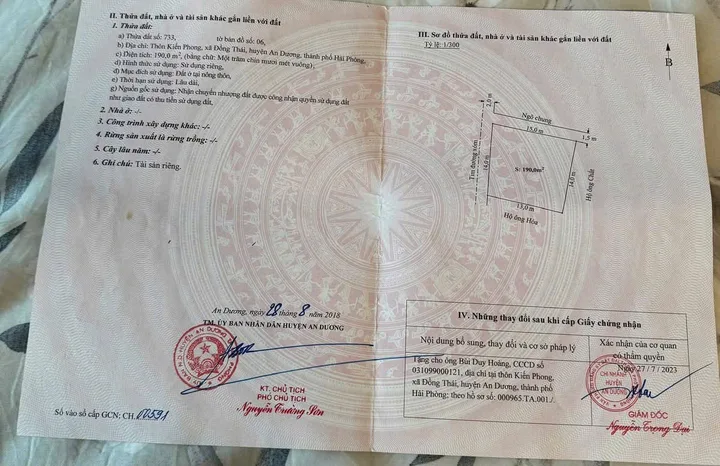 II. Thửa đất, nhà ở và tài sản khác gắn liền với đất
1. Thửa đất:
a) Thửa đất số: 733, tờ bản đồ số: 06,
b) Địa chỉ: Thôn Kiến Phong, xã Đồng Thái, huyện An Dương, thành phố Hải Phòng,
c) Diện tích: 190,0 m², (bằng chữ: Một trăm chín mươi mét vuông),
d) Hình thức sử dụng: Sử dụng riêng,
đ) Mục đích sử dụng: Đất ở tại nông thôn,
e) Thời hạn sử dụng: Lâu dài,
g) Nguồn gốc sử dụng: Nhận chuyển nhượng đất được công nhận quyền sử dụng đất
như giao đất có thu tiền sử dụng đất,
2. Nhà ở: -/-
3. Công trình xây dựng khác: -/-
4. Rừng sản xuất là rừng trồng: -/-
5. Cây lâu năm: -/-
6. Ghi chú: Tài sản riêng.
An Dương, ngày 28 tháng 8 năm 2018
TM. ỦY BAN NHÂN DÂN HUYỆN AN DƯƠNG
KT. CHỦ TỊCH
PHÓ CHỦ TỊCH
Nguyễn Trường Sơn
Số vào sổ cấp GCN: CH.00591
III. Sơ đồ thửa đất, nhà ở và tài sản khác gắn liền với đất
Tỷ lệ: 1/300
B
2,0 m
Ngõ chung
15,0 m
1,5 m
Tim đường xóm
14,0 m
S: 190,0m²
14,0 m
Hộ ông Chất
13,0 m
Hộ ông Hòa
IV. Những thay đổi sau khi cấp Giấy chứng nhận
Nội dung bổ sung, thay đổi và cơ sở pháp lý
Xác nhận của cơ quan
có thẩm quyền
Tặng cho ông Bùi Duy Hoàng, CCCD số
031099000121, địa chỉ tại thôn Kiến Phong,
xã Đồng Thái, huyện An Dương, thành phố
Hải Phòng; theo hồ sơ số: 000965.TA.001./.
Ngày 27/7/2023
CHI NHÁNH
HUYỆN
AN DƯƠNG
GIÁM ĐỐC
Nguyễn Trọng Đại